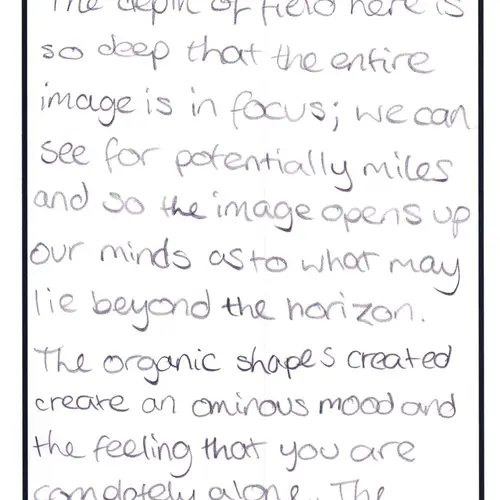 The depth of field here is
so deep that the entire
image is in focus; we can
see for potentially miles
and so the image opens up
our minds as to what may
lie beyond the horizon.
The organic shapes created
create an ominous mood and
the feeling that you are
completely alone. The